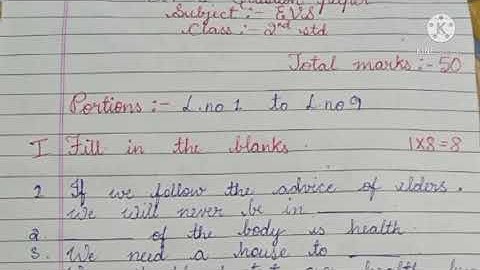 Question Paper
Subject :- EVS
Class :- 2nd std
Total marks :- 50
Portions :- L.no 1 to L.no 9
I Fill in the blanks. 1×8=8
1 If we follow the advice of elders.
we will never be in ______
2. ______ of the body is health.
3. We need a house to ______